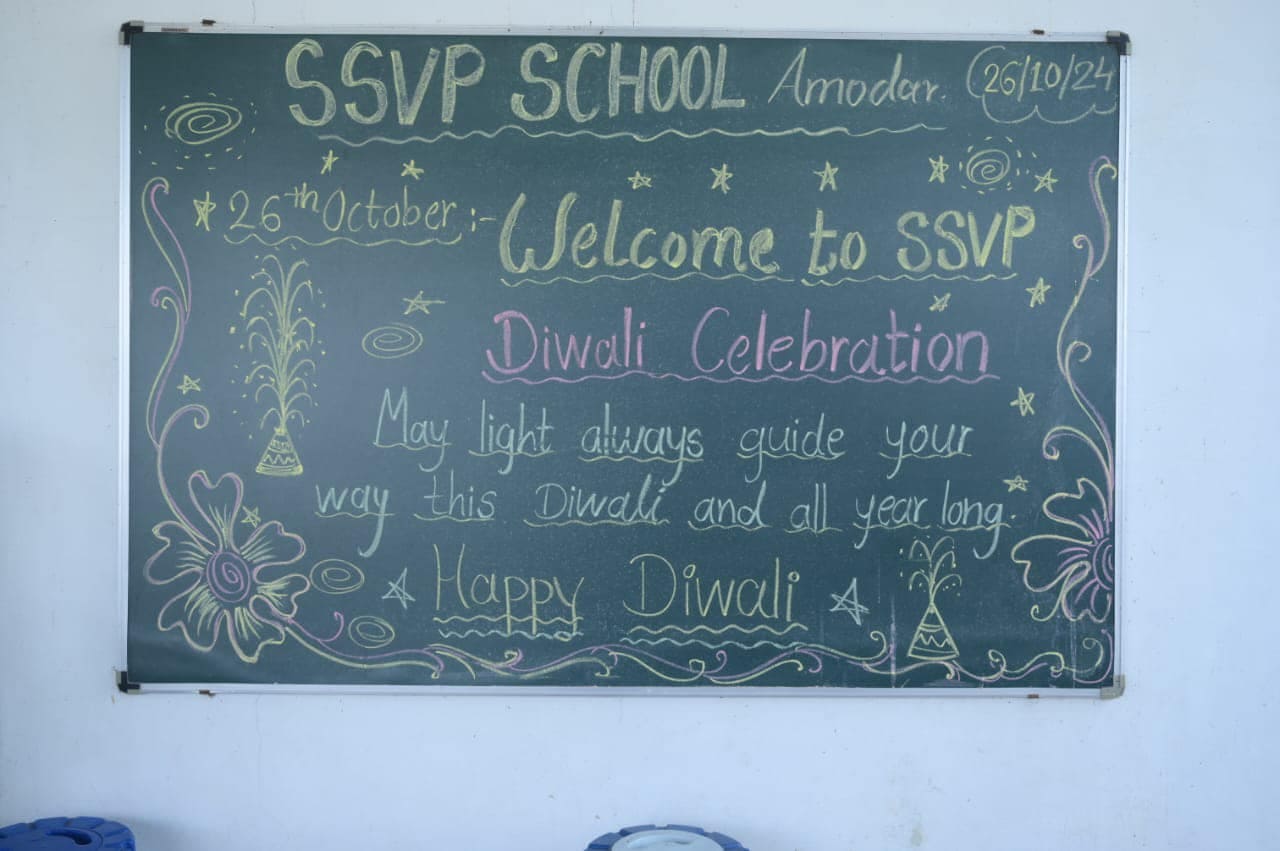 SSVP SCHOOL Amodar. 26/10/24
26th October :- Welcome to SSVP
Diwali Celebration
May light always guide your
way this Diwali and all year long.
Happy Diwali